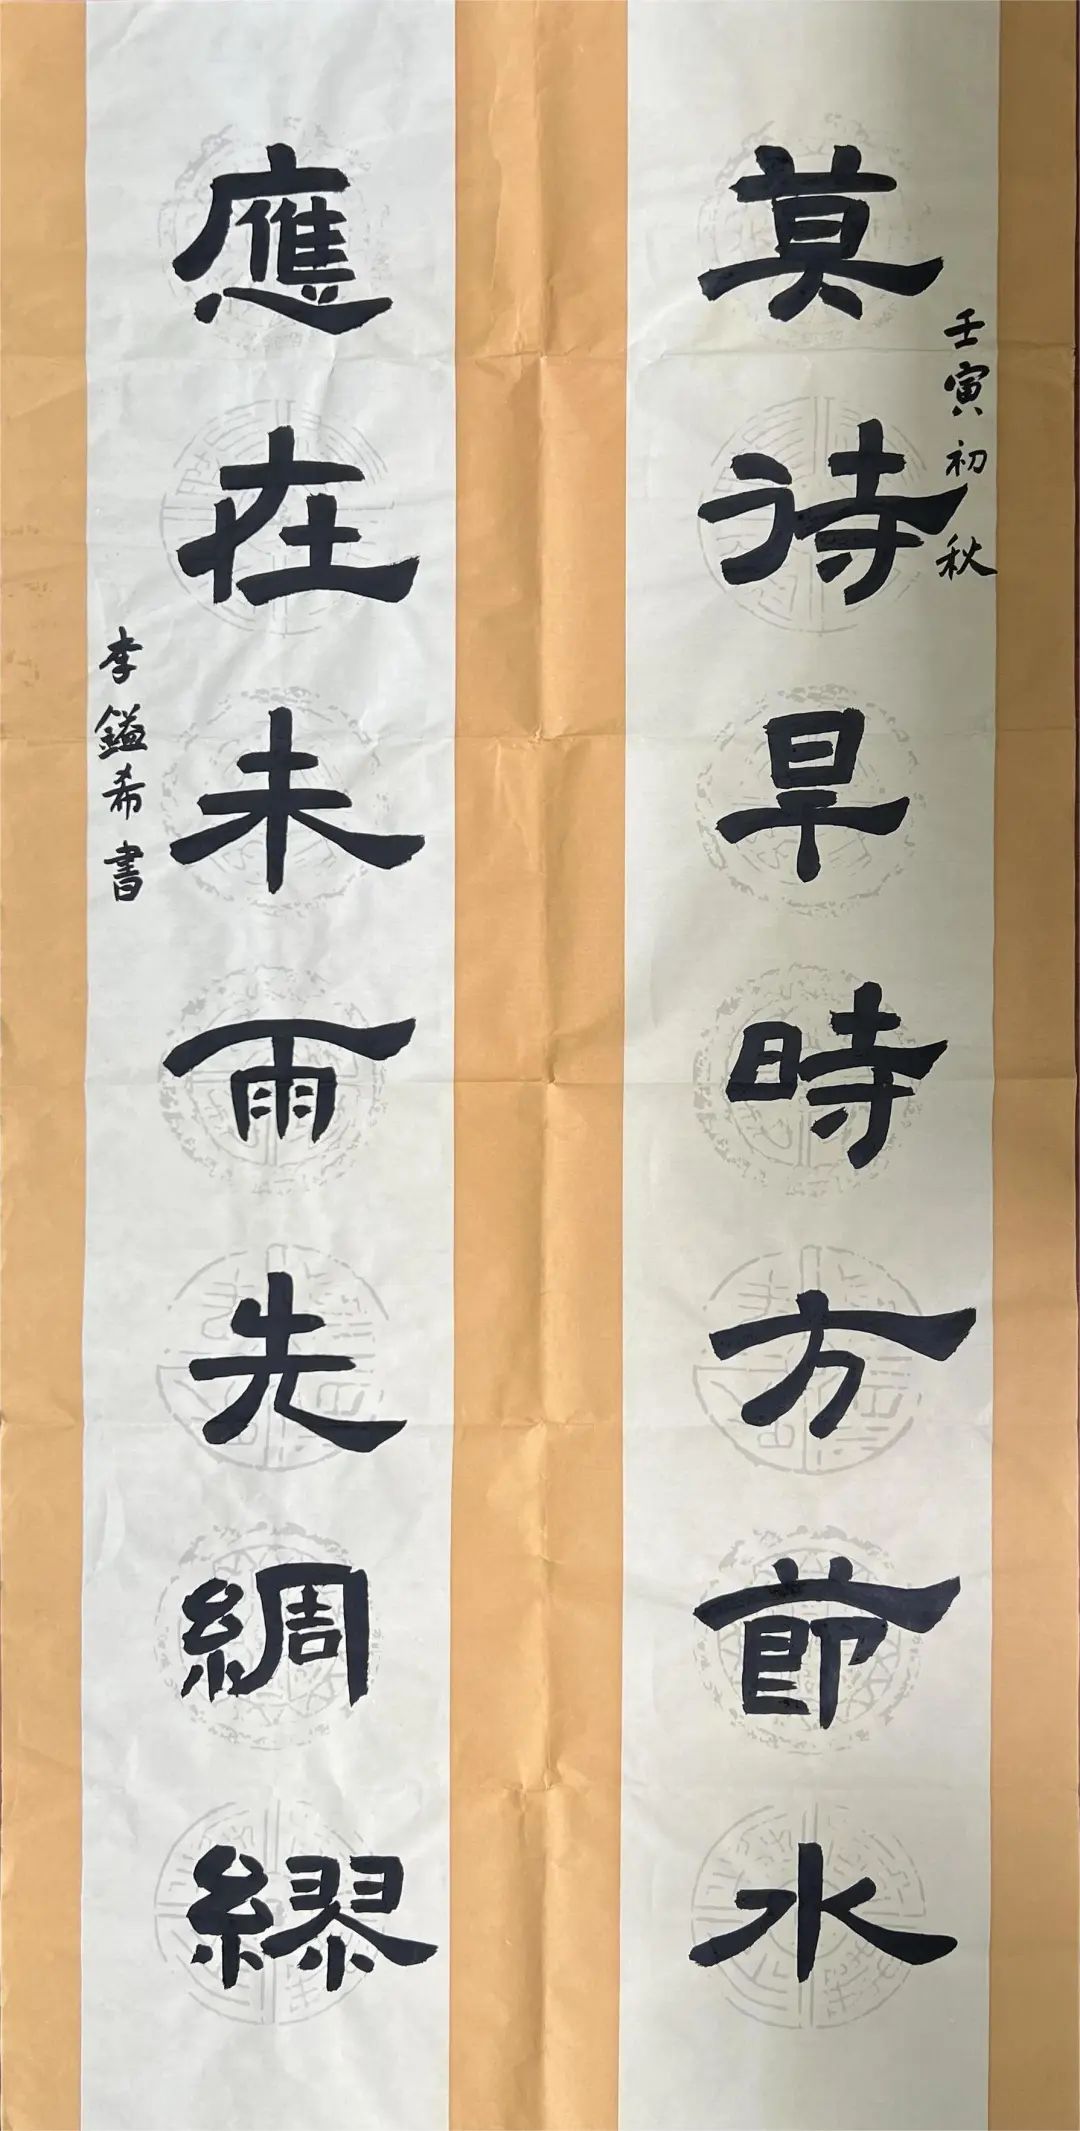 壬寅初秋
莫待旱時方節水
應在未雨先綢繆
李鎰希書